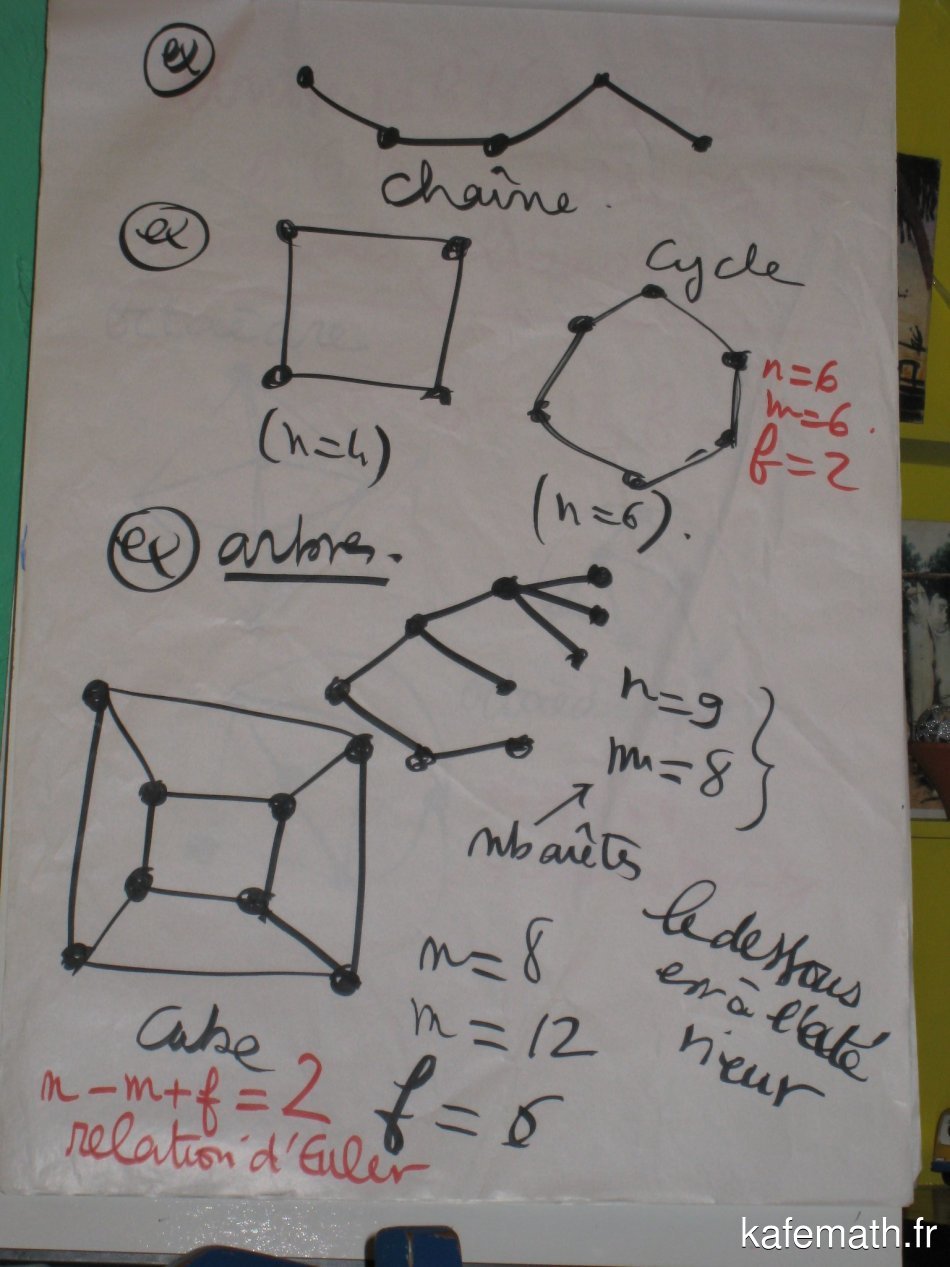 ex
chaîne.
ex
cycle
n=6
m=6.
f=2
(n=4)
(n=6).
ex arbres.
n=9
m=8
nb arêtes
le dessous
est à l'exté
rieur
n=8
m=12
f=6
Cube
n-m+f=2
relation d'Euler
kafemath.fr